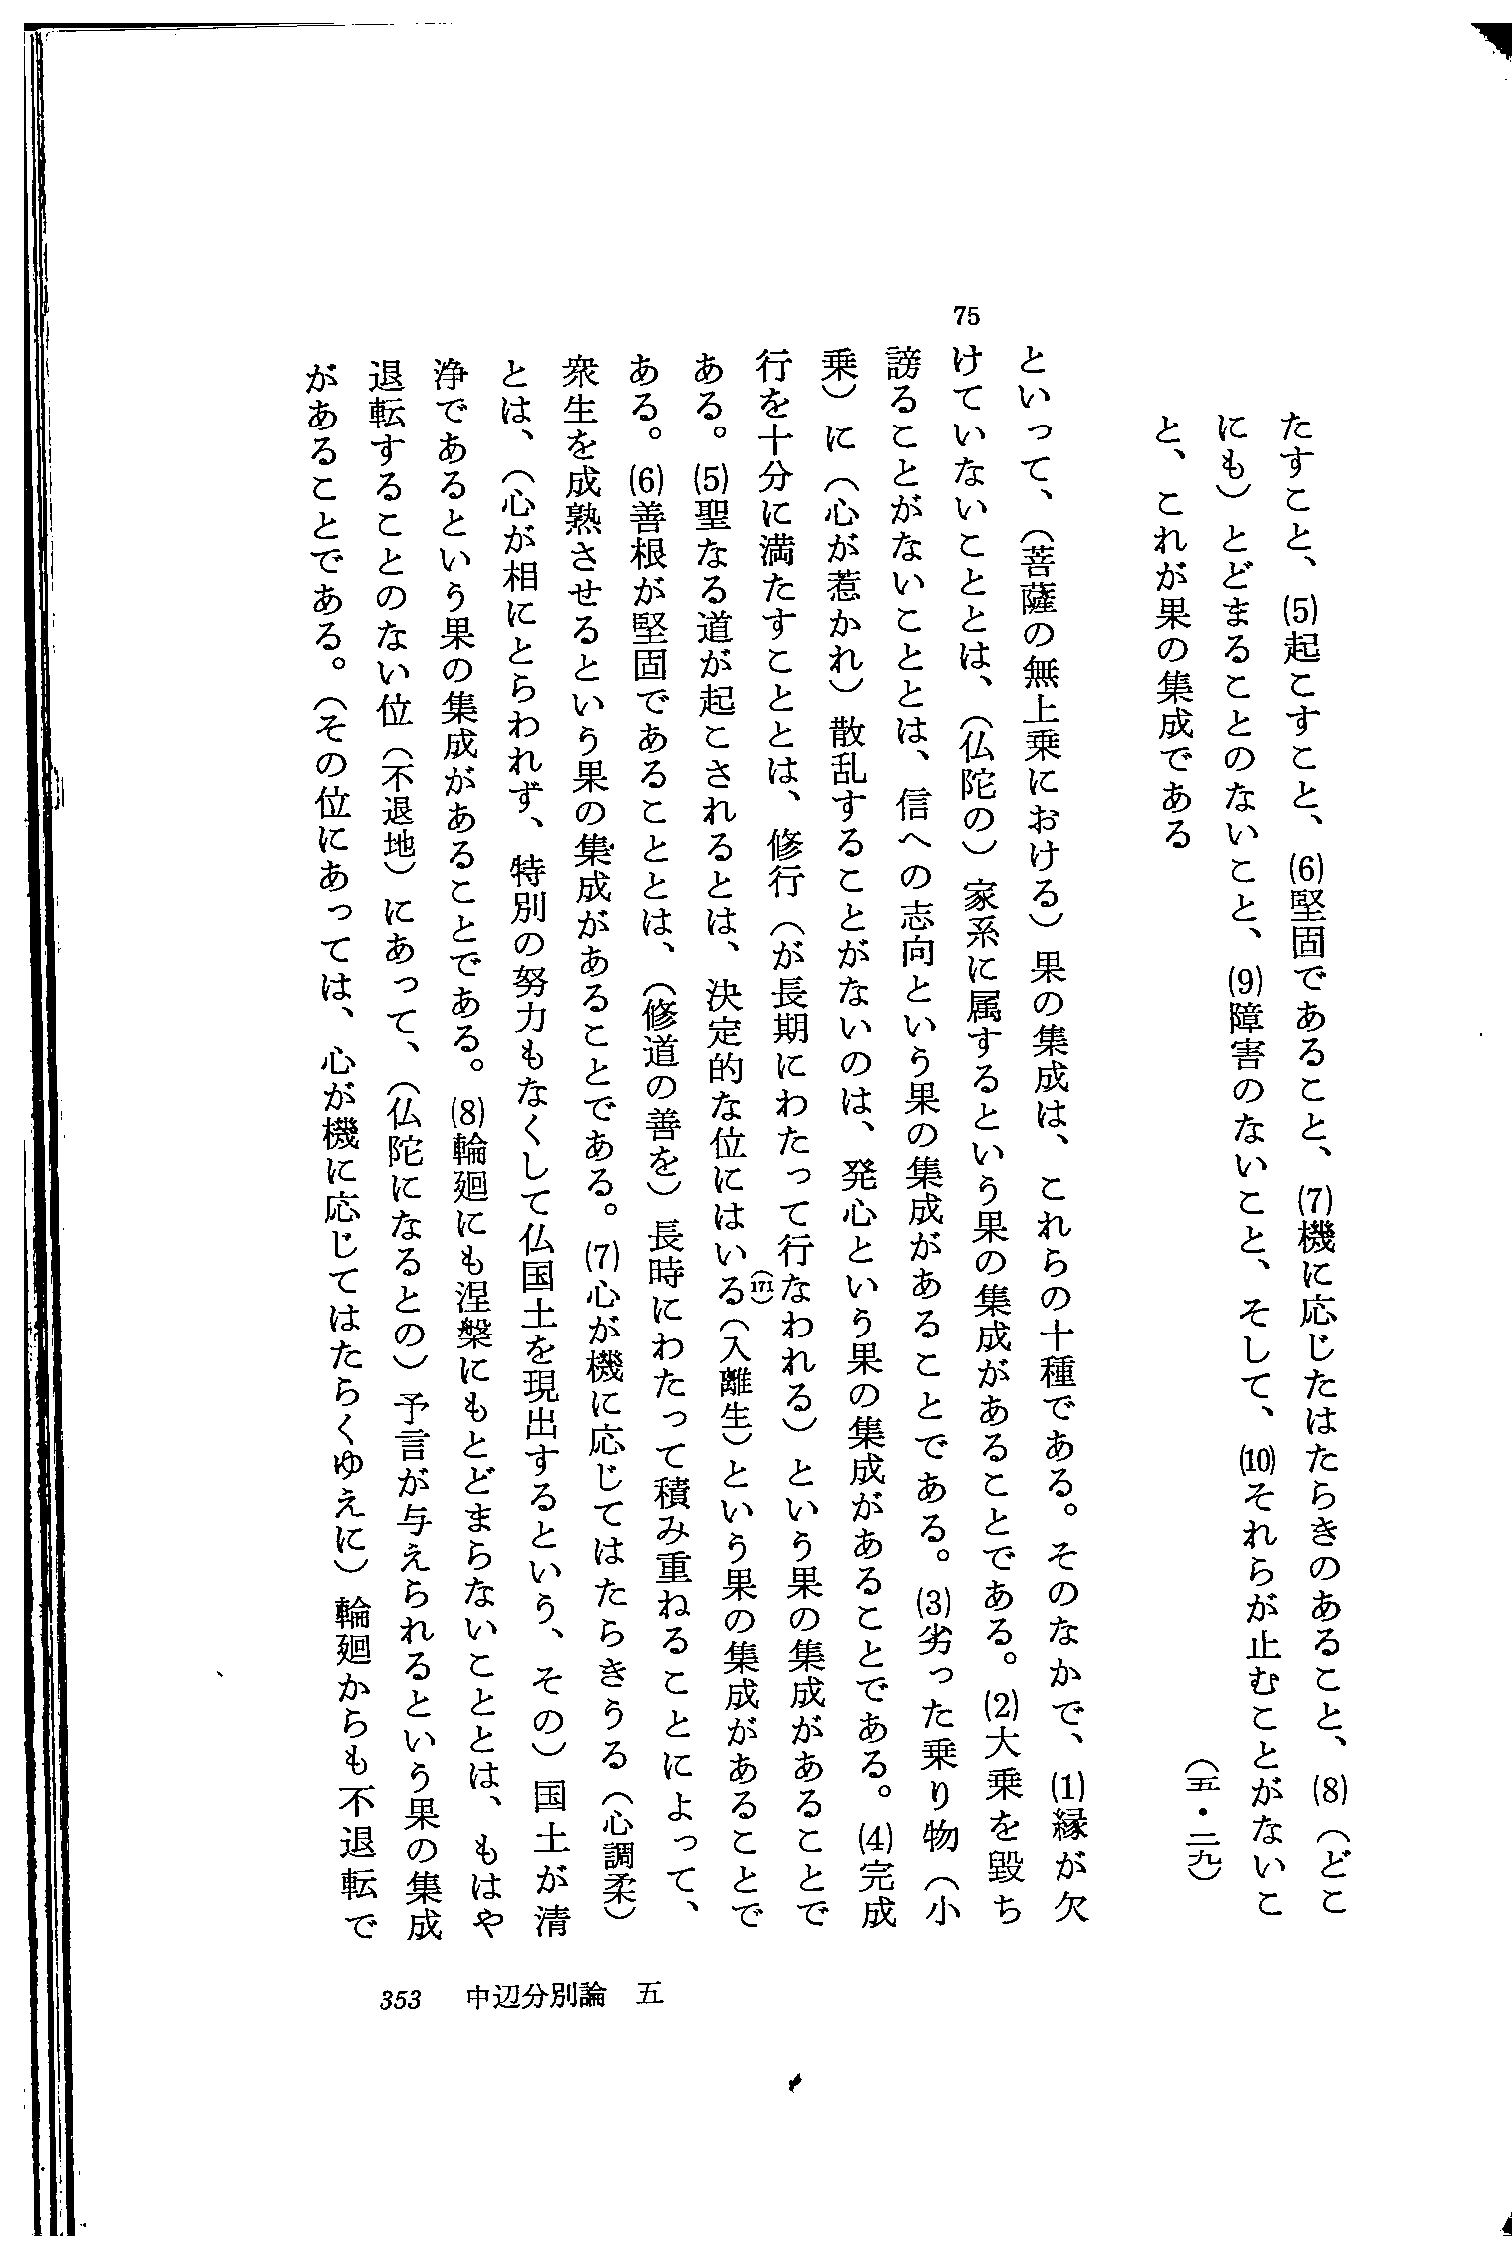 たすこと、(5)起こすこと、(6)堅固であること、(7)機に応じたはたらきのあること、(8)（どこ
にも）とどまることのないこと、(9)障害のないこと、そして、(10)それらが止むことがないこ
と、これが果の集成である
（五・二九）
といって、（菩薩の無上乗における）果の集成は、これらの十種である。そのなかで、(1)縁が欠
75
けていないこととは、（仏陀の）家系に属するという果の集成があることである。(2)大乗を毀ち
謗ることがないこととは、信への志向という果の集成があることである。(3)劣った乗り物（小
乗）に（心が惹かれ）散乱することがないのは、発心という果の集成があることである。(4)完成
行を十分に満たすこととは、修行（が長期にわたって行なわれる）という果の集成があることで
ある。(5)聖なる道が起こされるとは、決定的な位にはいる（入離生）(171)という果の集成があることで
ある。(6)善根が堅固であることとは、（修道の善を）長時にわたって積み重ねることによって、
衆生を成熟させるという果の集成があることである。(7)心が機に応じてはたらきうる（心調柔）
とは、（心が相にとらわれず、特別の努力もなくして仏国土を現出するという、その）国土が清
浄であるという果の集成があることである。(8)輪廻にも涅槃にもとどまらないこととは、もはや
退転することのない位（不退地）にあって、（仏陀になるとの）予言が与えられるという果の集成
があることである。（その位にあっては、心が機に応じてはたらくゆえに）輪廻からも不退転で
353 中辺分別論 五